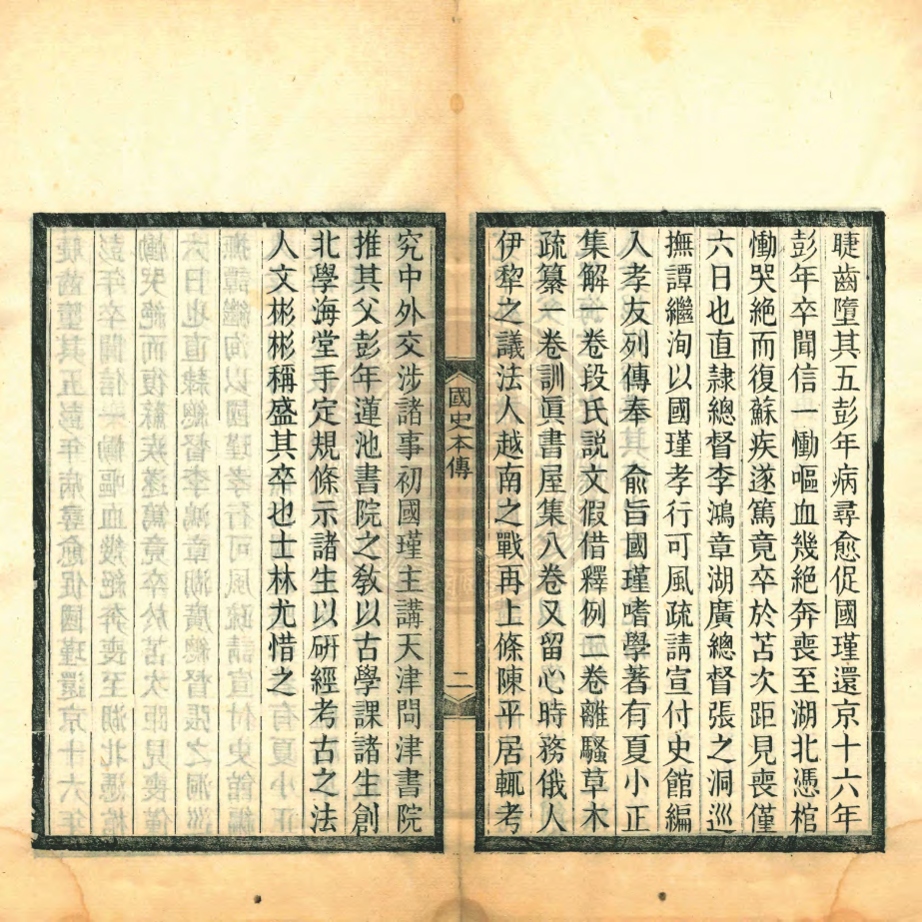 睫齒墮其五彭年病尋愈促國瑾還京十六年
彭年卒聞信一慟嘔血幾絕奔喪至湖北憑棺
慟哭絕而復蘇疾遂篤竟卒於苫次距見喪僅
六日也直隸總督李鴻章湖廣總督張之洞巡
撫譚繼洵以國瑾孝行可風疏請宣付史館編
入孝友列傳奉 俞旨國瑾嗜學著有夏小正
集解一卷段氏說文假借釋例二卷離騷草木
疏纂一卷訓眞書屋集八卷又留心時務俄人
伊犂之議法人越南之戰再上條陳平居輒考
國史本傳
二
究中外交涉諸事初國瑾主講天津問津書院
推其父彭年蓮池書院之教以古學課諸生創
北學海堂手定規條示諸生以研經考古之法
人文彬彬稱盛其卒也士林尤惜之